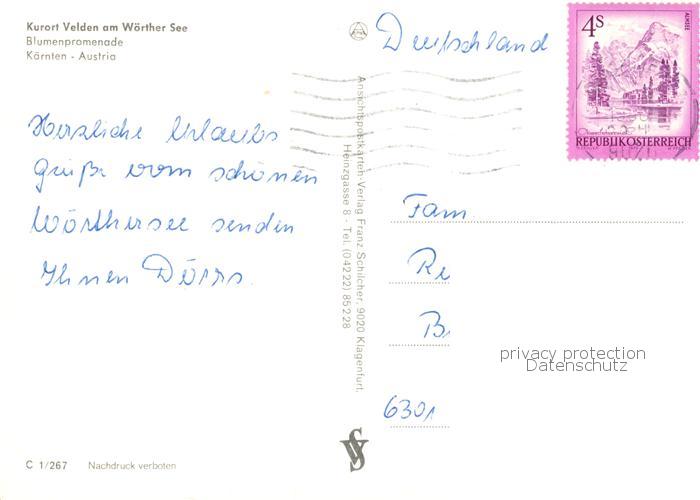 Kurort Velden am Wörther See
Blumenpromenade
Kärnten - Austria
Herzliche Urlaubs
grüße vom schönen
Wörthersee senden
Ihnen Dörrs.
C 1/267 Nachdruck verboten
Ansichtspostkarten-Verlag Franz Schilcher, 9020 Klagenfurt,
Heinzgasse 8 - Tel. (04222) 85228
Deutschland
4S
ALMSEE
REPUBLIK ÖSTERREICH
Fam
Re
B
privacy protection
Datenschutz
6301